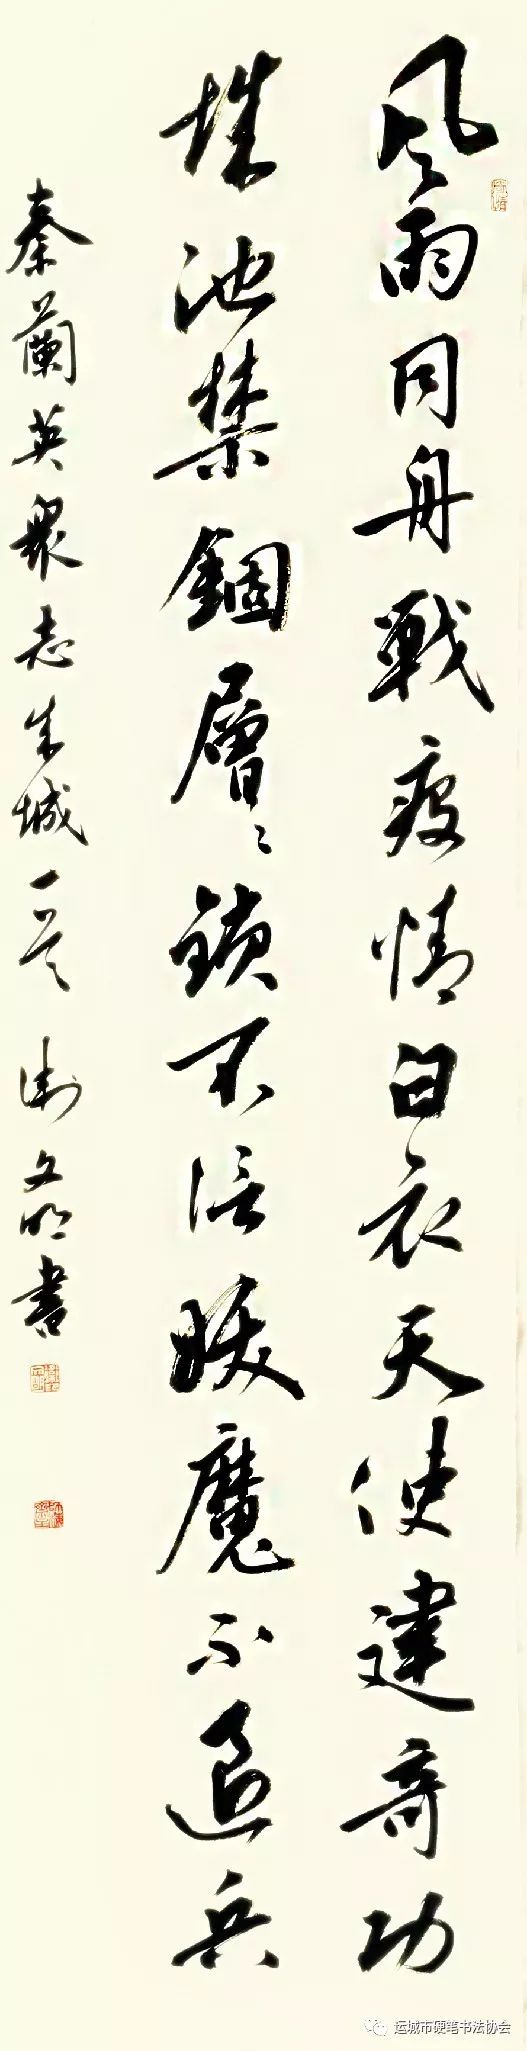 風雨同舟戰疫情白衣天使建奇功
城池禁錮層〻鎖不信妖魔不退兵
秦蘭英眾志成城一首 衛文明書
运城市硬笔书法协会